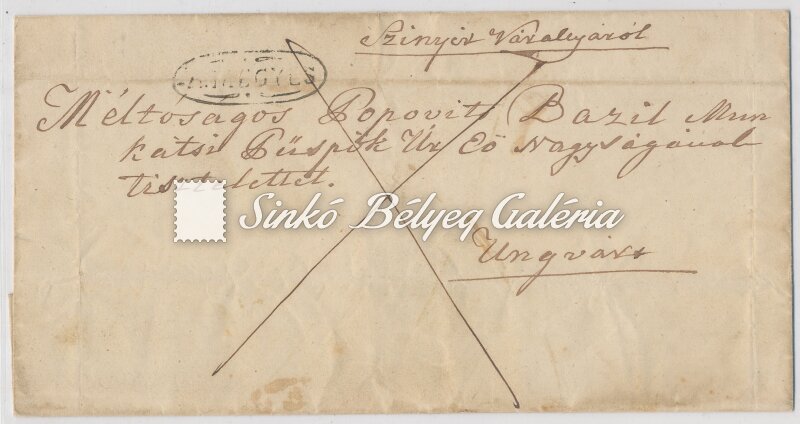 Szinyér Váralyáról
A.MEGYES
Méltosagos Popovits Bazil Mun
kátsi Püspök Úr Eő Nagyságának
tisztelettel.
Sinkó Bélyeg Galéria
Ungvárt